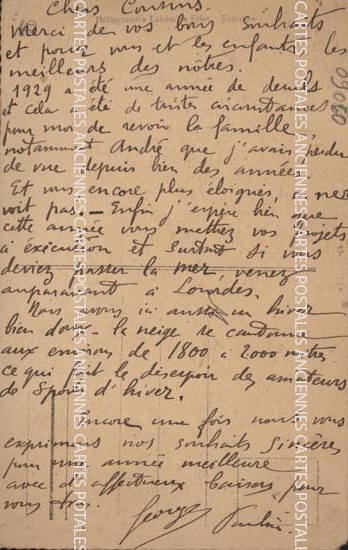 Chers Cousins.
Merci de vos bons souhaits
et pour vous et les enfants les
meilleurs des nôtres.
1929 a été une année de deuils
et cela a été de tristes circonstances
pour moi de revoir la famille,
notamment André que j'avais perdu
de vue depuis bien des années.
Et vous encore plus éloignés, on ne se
voit pas. — Enfin j'espère bien que
cette année vous mettrez vos projets
à exécution et surtout si vous
deviez passer la mer, venez
auparavant à Lourdes.
Nous avons ici aussi un hiver
bien doux - la neige se cantonne
aux environs de 1800 à 2000 mètres
ce qui fait le désespoir des amateurs
de Sports d'hiver.
Encore une fois nous vous
exprimons nos souhaits sincères
pour une année meilleure
avec d'affectueux baisers pour
vous tous.
Georges Pauline
09080
CARTES POSTALES ANCIENNES